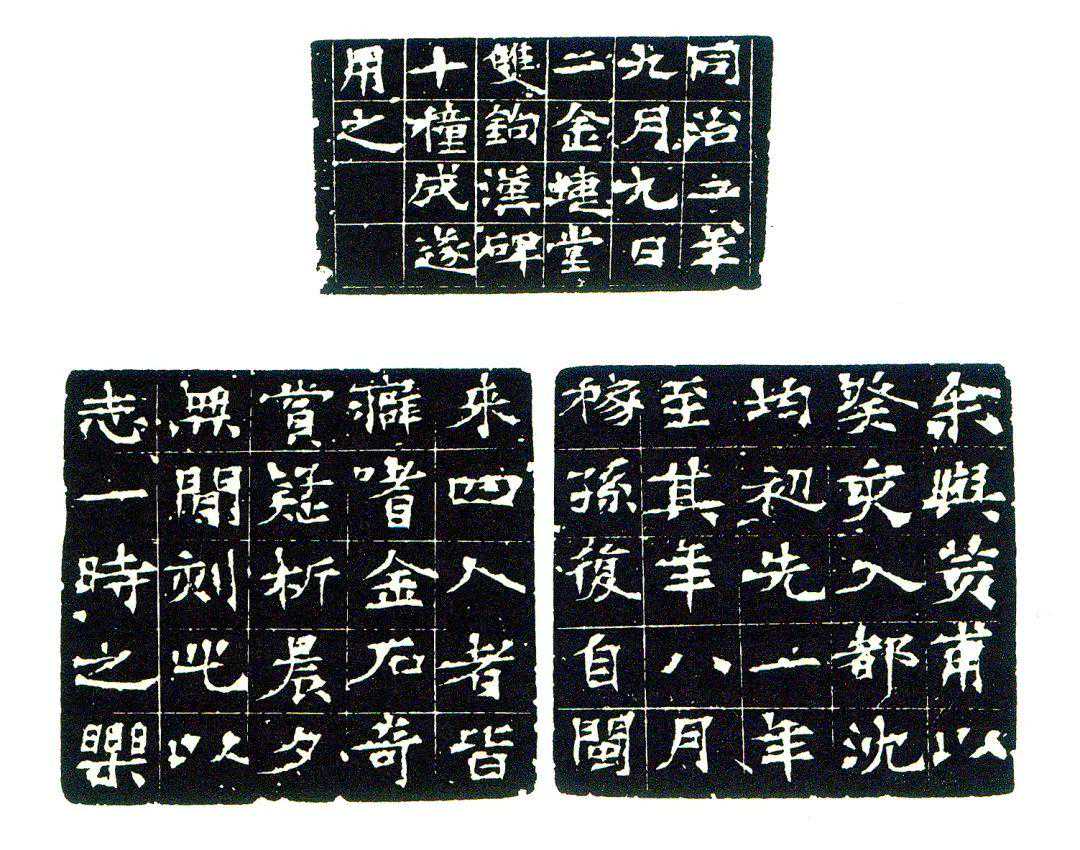 同治年
九月九日
二金蜨堂
雙鉤漢碑
十種成遂
用之
余與荄甫以
癸亥入都沈
均初先一年
至其年八月
稼孫復自閩
來四人者皆
癖嗜金石奇
賞疑析晨夕
無閒刻此以
志一時之樂